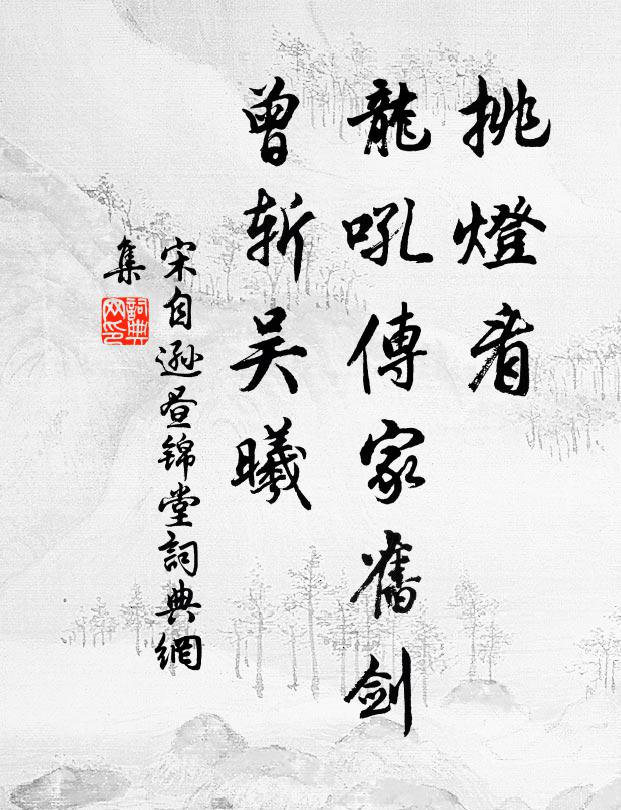 挑燈看
龍吼傳家舊劍
曾斬吴曦
宋自遜昼锦堂詞典網
集
詞典網印